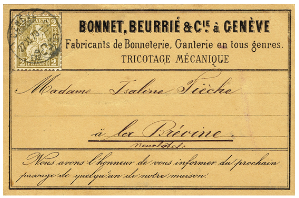 BONNET, BEURRIÉ & Cie. à GENÈVE
Fabricants de Bonneterie, Ganterie en tous genres.
TRICOTAGE MÉCANIQUE
Madame
à la Brévine
Nous avons l'honneur de vous informer du prochain
passage de quelqu'un de notre maison.